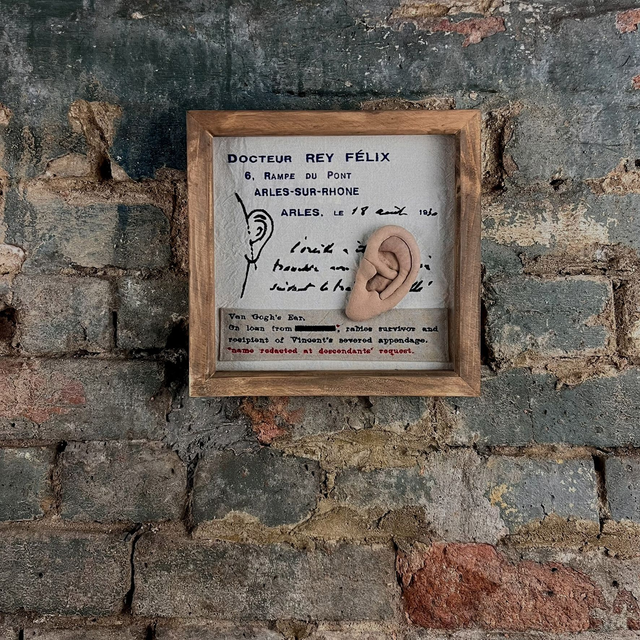 DOCTEUR REY FÉLIX
6, RAMPE DU PONT
ARLES-SUR-RHONE
ARLES, LE 18 août 1930
l'oreille a
suivant le
Van Gogh's Ear.
On loan from *, rabies survivor and
recipient of Vincent's severed appendage.
*name redacted at descendants' request.